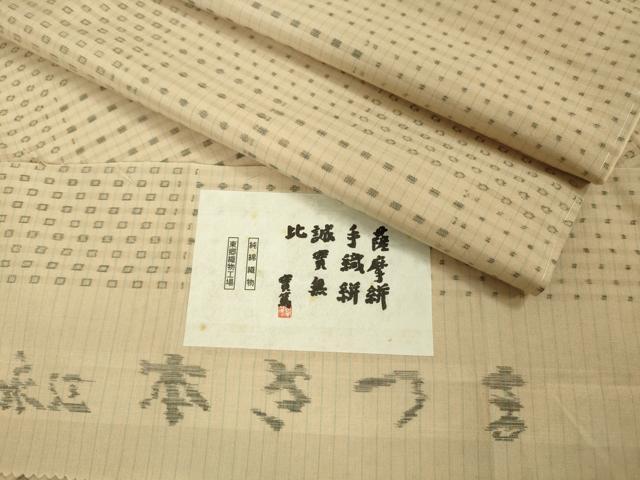 薩摩絣
手織絣
誠實無
比
實篤
純綿織物
東郷織物工場
永江本さつま